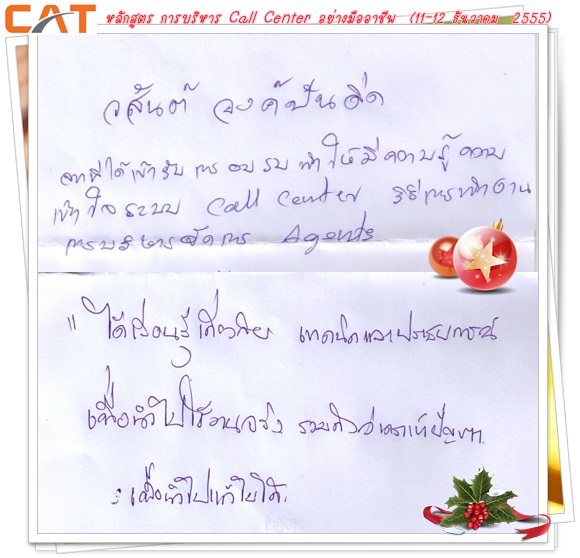 CAT หลักสูตร การบริหาร Call Center อย่างมืออาชีพ (11-12 ธันวาคม 2555)
วสันต์
จากที่ได้เข้ารับการอบรม ทำให้มีความรู้ความ
เข้าใจระบบ Call Center วิธีการทำงาน
การบริหารจัดการ Agents
"ได้เรียนรู้เกี่ยวกับ เทคนิคและประสบการณ์
เพื่อนำไปใช้งานจริง รวมถึงวิเคราะห์ปัญหา
เพื่อนำไปแก้ไขได้.